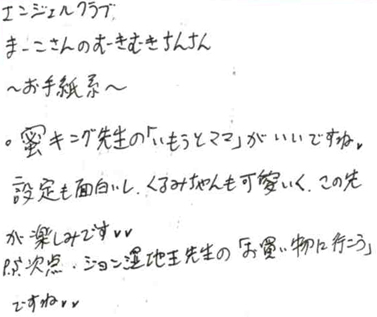 エンジェルクラブ
まーこさんのむーきむきちんちん
〜お手紙系〜
。蜜キング先生の「いもうとママ」がいいですね。
設定も面白いし、くるみちゃんも可愛いく、この先
が楽しみです♥♥
P.S.次点・ション湿地王先生の「お買い物に行こう」
ですね♥♥